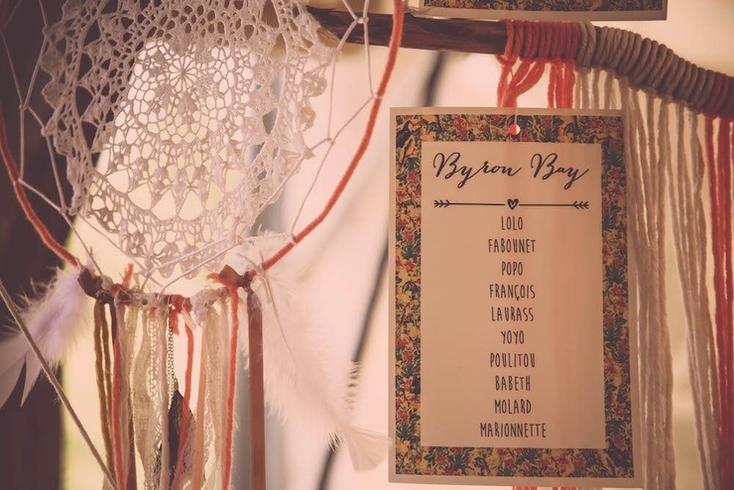 Byron Bay
LOLO
FABOUNET
POPO
FRANÇOIS
LAURASS
YOYO
POULITOU
BABETH
MOLARD
MARIONNETTE